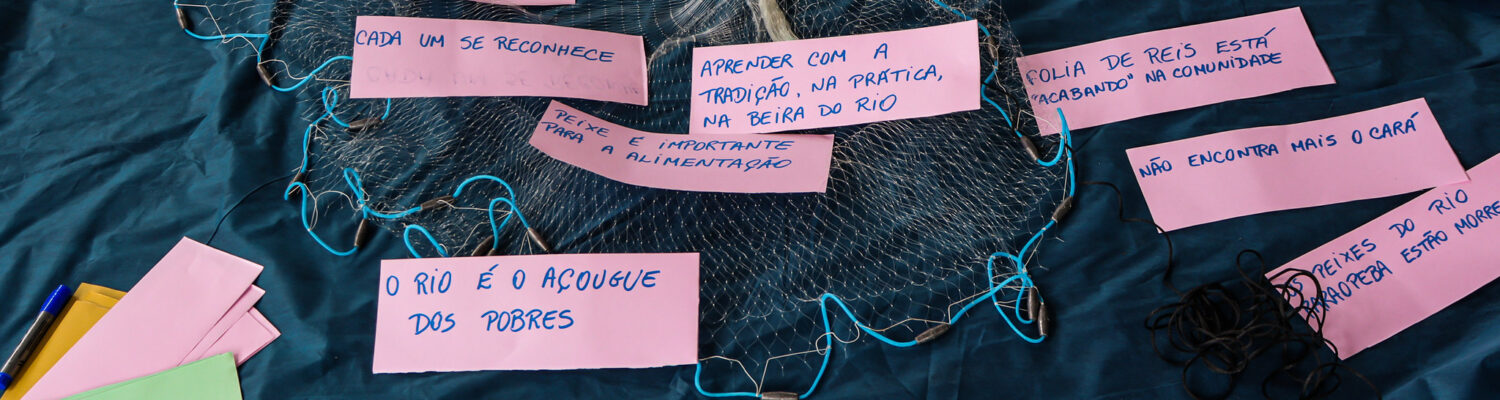 CADA UM SE RECONHECE
APRENDER COM A
TRADIÇÃO, NA PRÁTICA,
NA BEIRA DO RIO
FOLIA DE REIS ESTÁ
"ACABANDO" NA COMUNIDADE
PEIXE É IMPORTANTE
PARA A ALIMENTAÇÃO
NÃO ENCONTRA MAIS O CARÁ
O RIO É O AÇOUGUE
DOS POBRES
PEIXES DO RIO
PARAOPEBA ESTÃO MORRE